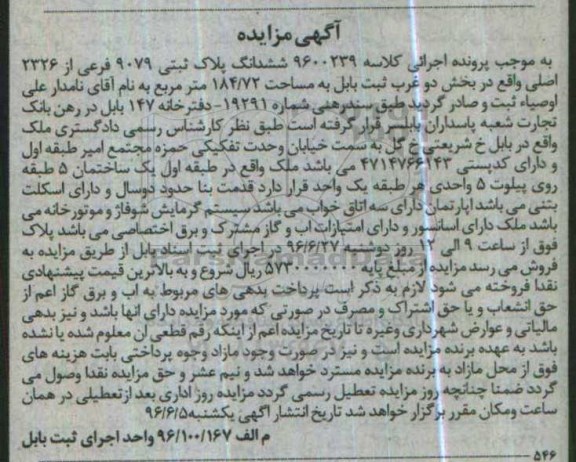 آگهی مزایده
به موجب پرونده اجرائی کلاسه ۹۶۰۰۲۳۹ ششدانگ پلاک ثبتی ۹۰۷۹ فرعی از ۲۳۲۶
اصلی واقع در بخش دو غرب ثبت بابل به مساحت ۱۸۴/۷۲ متر مربع به نام آقای نامدار علی
اوصیاء ثبت و صادر گردید طبق سندرهنی شماره ۱۹۲۹۱- دفترخانه ۱۴۷ بابل در رهن بانک
تجارت شعبه پاسداران بابلسر قرار گرفته است طبق نظر کارشناس رسمی دادگستری ملک
واقع در بابل خ شریعتی خ گل به سمت خیابان وحدت تفکیکی حمزه مجتمع امیر طبقه اول
و دارای کدپستی ۴۷۱۴۷۶۶۱۴۳ می باشد ملک واقع در طبقه اول یک ساختمان ۵ طبقه
روی پیلوت ۵ واحدی هر طبقه یک واحد قرار دارد قدمت بنا حدود دوسال و دارای اسکلت
بتنی می باشد اپارتمان دارای سه اتاق خواب می باشد سیستم گرمایش شوفاژ و موتورخانه می
باشد ملک دارای اسانسور و دارای امتیازات اب و گاز مشترک و برق اختصاصی می باشد پلاک
فوق از ساعت ۹ الی ۱۲ روز دوشنبه ۹۶/۶/۲۷ در اجرای ثبت اسناد بابل از طریق مزایده به
فروش می رسد مزایده از مبلغ پایه ۵۷۳۰۰۰۰۰۰۰ ریال شروع و به بالاترین قیمت پیشنهادی
نقدا فروخته می شود لازم به ذکر است پرداخت بدهی های مربوط به اب و برق گاز اعم از
حق انشعاب و یا حق اشتراک و مصرف در صورتی که مورد مزایده دارای انها باشد و نیز بدهی
مالیاتی و عوارض شهرداری وغیره تا تاریخ مزایده اعم از اینکه رقم قطعی ان معلوم شده یا نشده
باشد به عهده برنده مزایده است و نیز در صورت وجود مازاد وجوه پرداختی بابت هزینه های
فوق از محل مازاد به برنده مزایده مسترد خواهد شد و نیم عشر و حق مزایده نقدا وصول می
گردد ضمنا چنانچه روز مزایده تعطیل رسمی گردد مزایده روز اداری بعد ازتعطیلی در همان
ساعت ومکان مقرر برگزار خواهد شد تاریخ انتشار اگهی یکشنبه ۹۶/۶/۵
م الف ۹۶/۱۰۰/۱۶۷ واحد اجرای ثبت بابل
۵۴۶
ParsNamadData